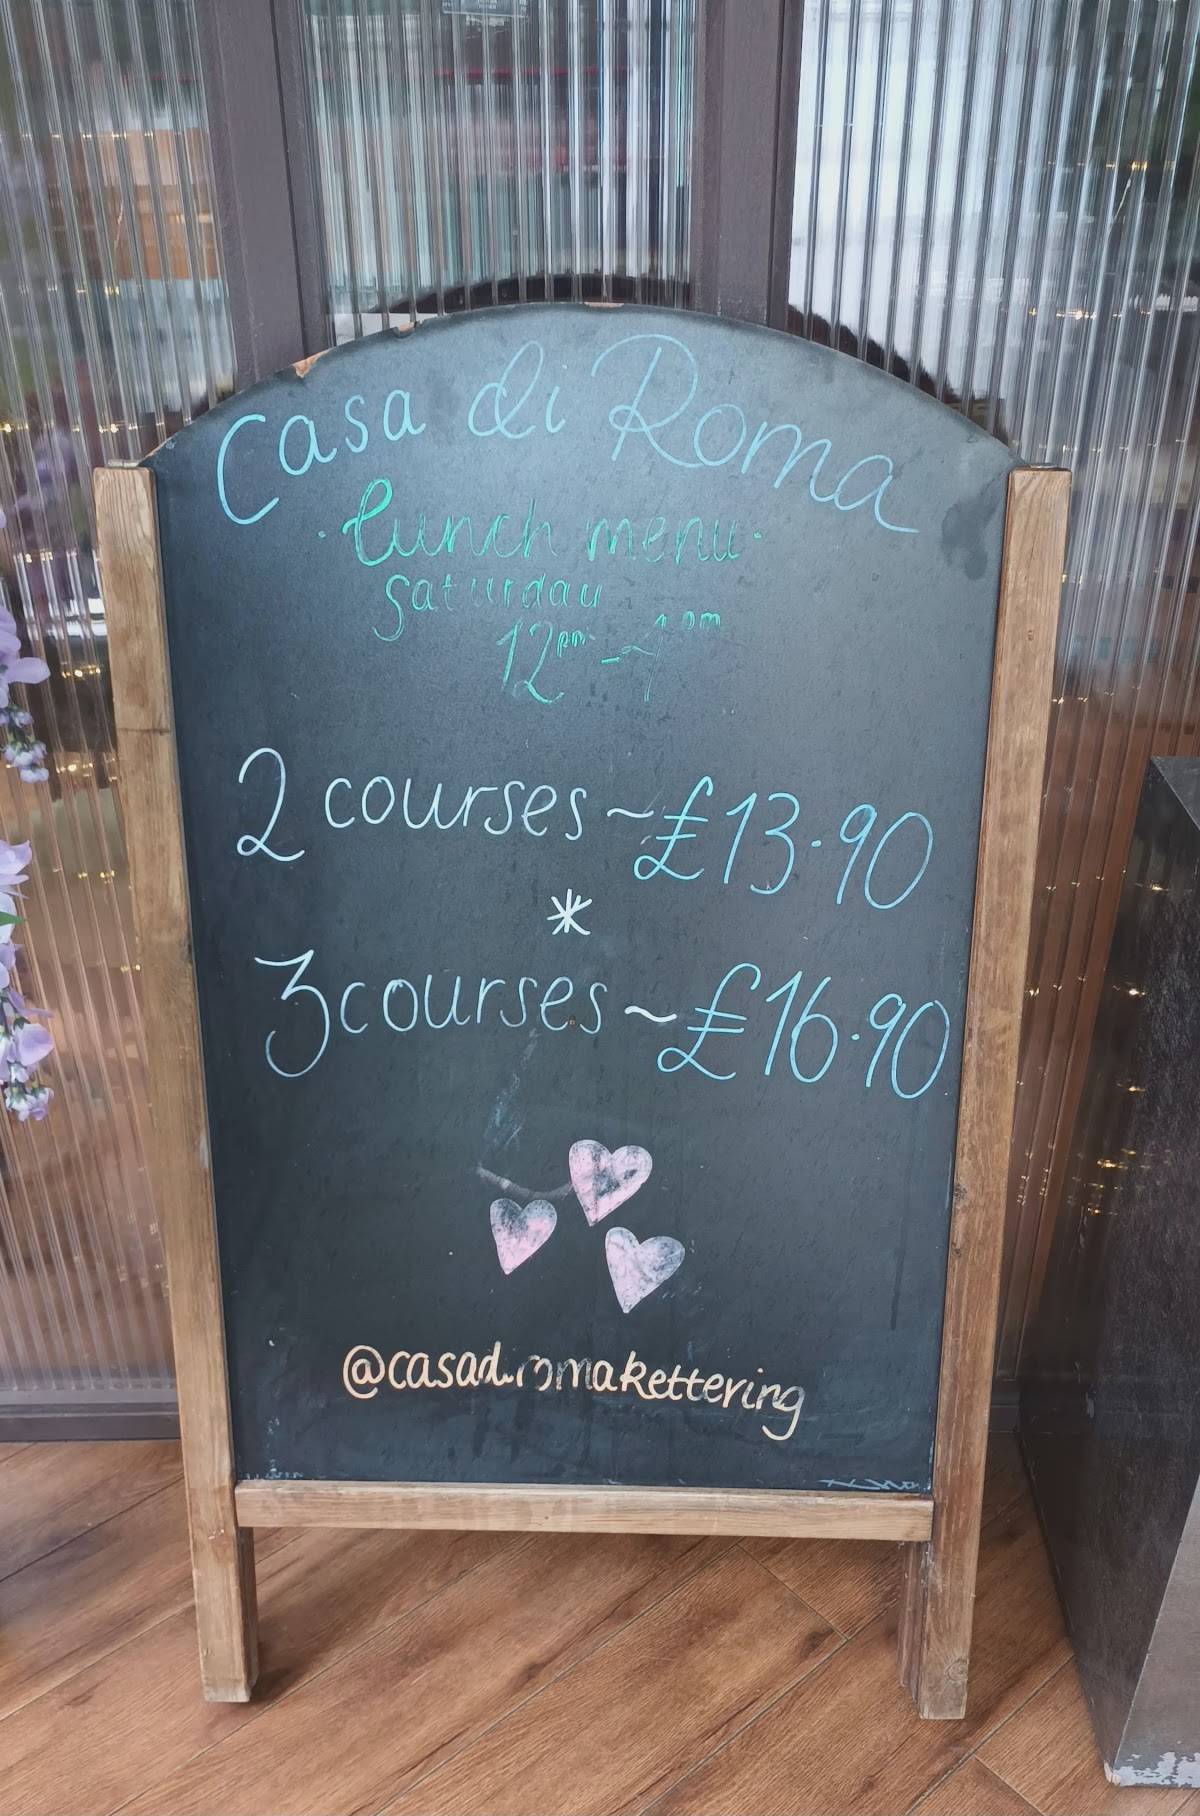 Casa di Roma
· lunch menu ·
Saturday
12pm -
2 courses ~ £13.90
*
3 courses ~ £16.90
@casadiromakettering